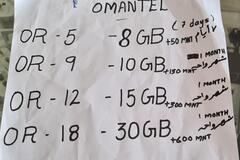 OMANTEL
OR - 5 - 8 GB +50 MNT (7 days) ٧ أيام
OR - 9 - 10 GB +150 MNT 1 MONTH شهر واحد
OR - 12 - 15 GB +300 MNT 1 MONTH شهر واحد
OR - 18 - 30 GB +600 MNT 1 MONTH شهر واحد